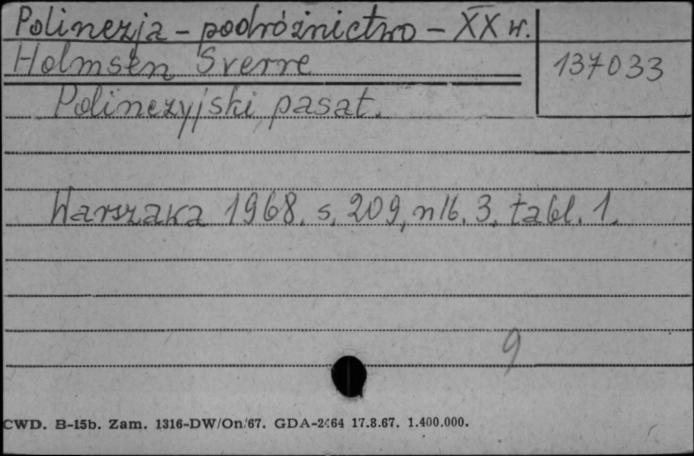 Polinezja - podróżnictwo - XX w.
Holmsen Sverre
137033
Polinezyjski pasat.
Warszawa 1968. s. 209, nlb. 3. tabl. 1.
9
CWD. B-15b. Zam. 1316-DW/On/67. GDA-2464 17.8.67. 1.400.000.